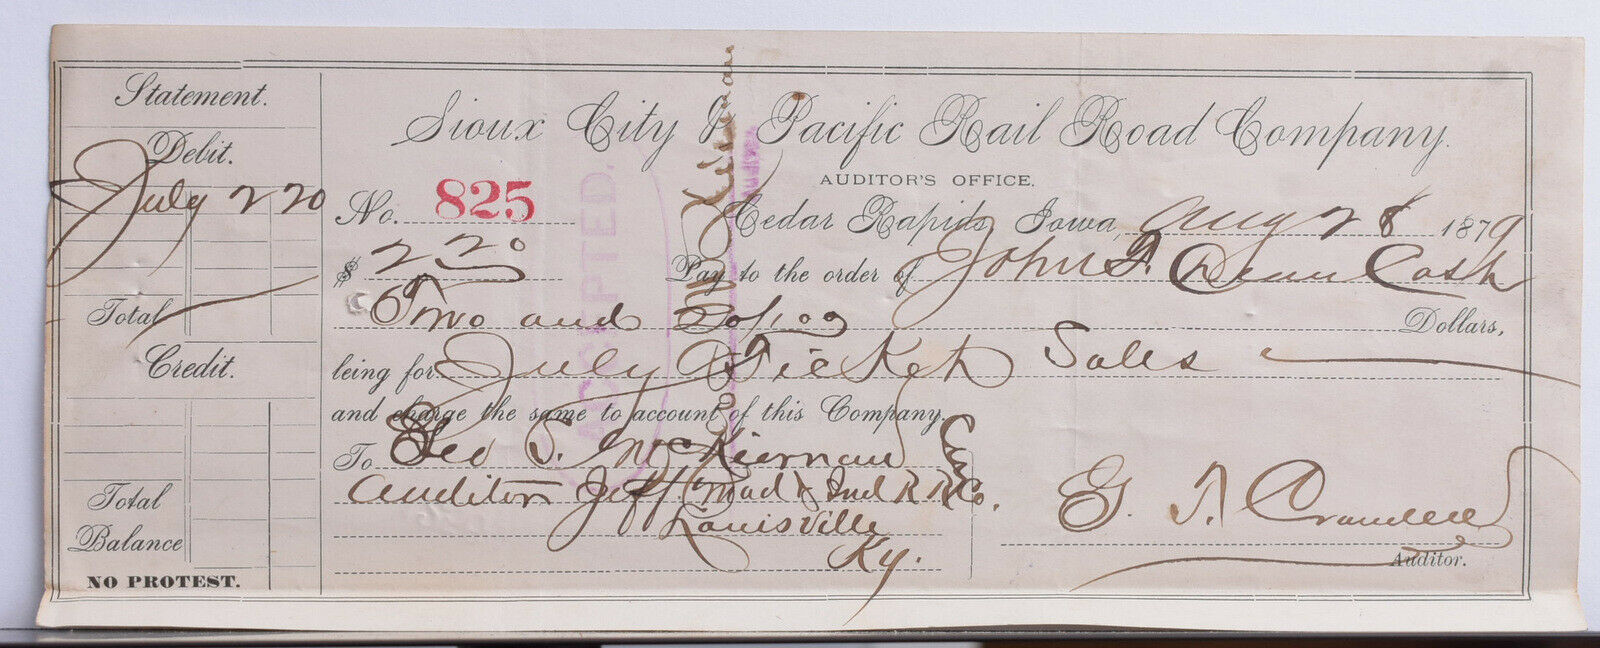 Statement.
Debit.
July 2 20
Total
Credit.
Total
Balance
NO PROTEST.
Sioux City & Pacific Rail Road Company.
AUDITOR'S OFFICE.
No. 825
Cedar Rapids, Iowa, Aug 28 1879
$ 2 20
Pay to the order of John F. Dean Cash
Two and 20/100 Dollars,
being for July Ticket Sales
and charge the same to account of this Company.
To Geo S. McKiernan
Auditor Jeff Mad & Ind R R Co.
Louisville
Ky.
Auditor.
ACCEPTED.